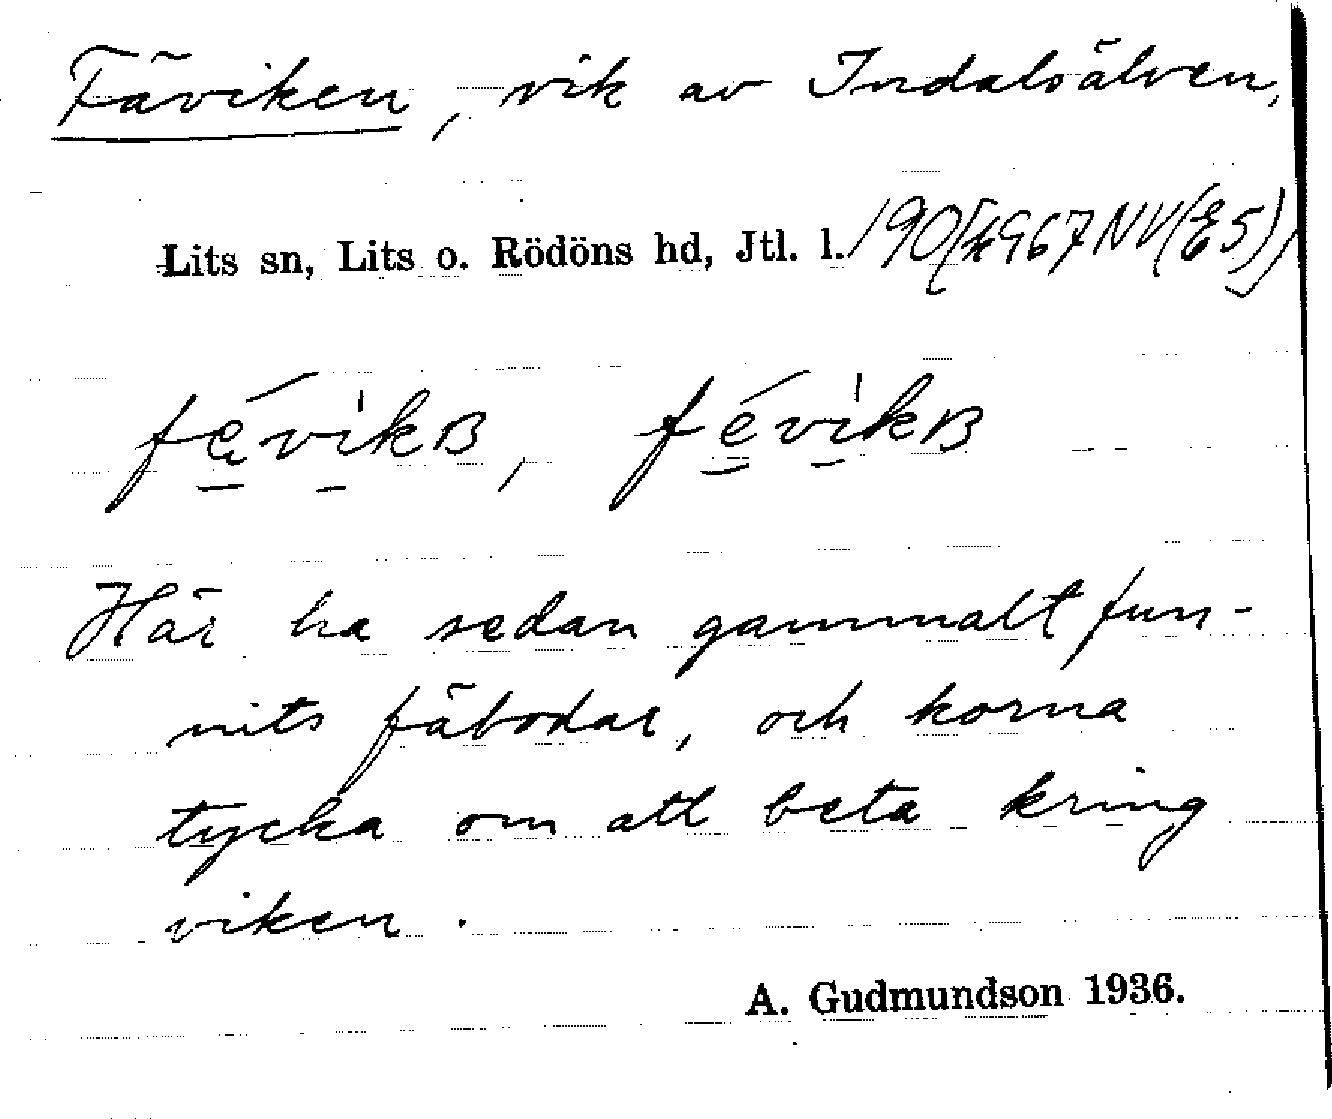 Fäviken, vik av Indalsälven,
Lits sn, Lits o. Rödöns hd, Jtl. l.
févikʙ, févikʙ
Här ha sedan gammalt fun-
nits fäbodar, och korna
tycka om att beta kring
viken.
A. Gudmundson 1936.